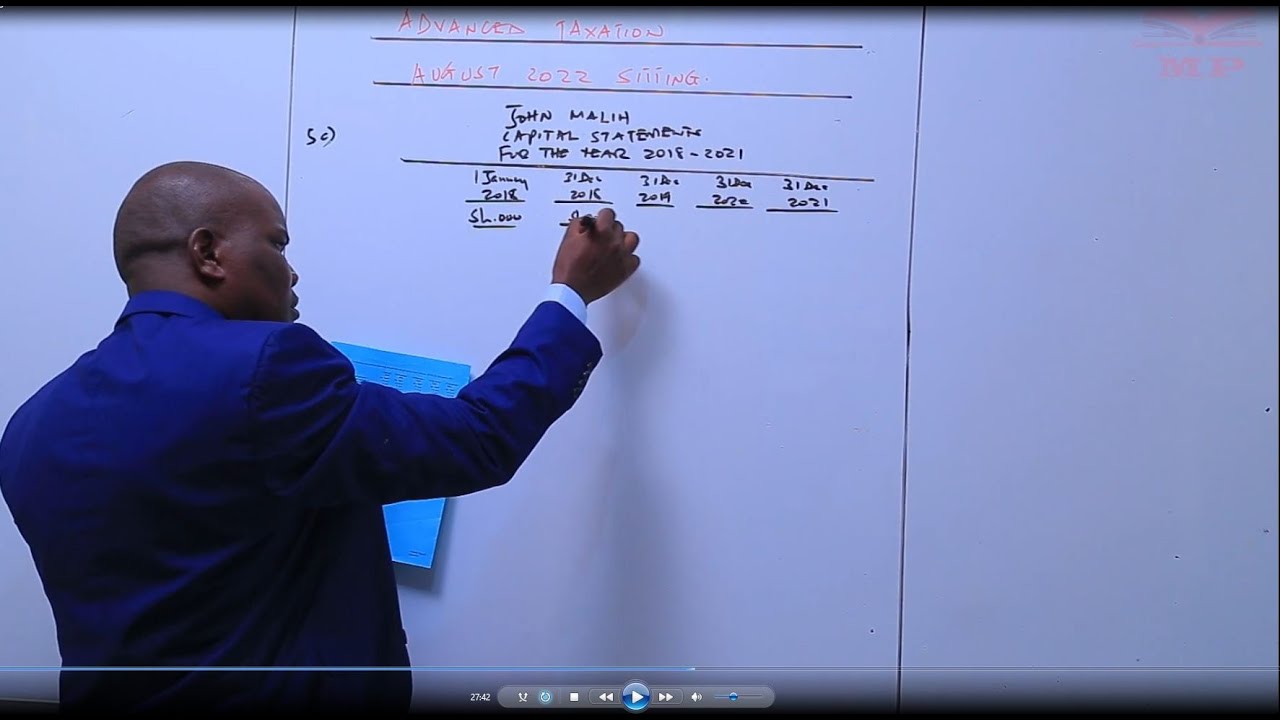 ADVANCED TAXATION
AUGUST 2022 SITTING.
5c)
JOHN MALIH
CAPITAL STATEMENTS
FOR THE YEAR 2018 - 2021
1 January 31 Dec 31 Dec 31 Dec 31 Dec
2018 2018 2019 2020 2021
Sh.000
27:42